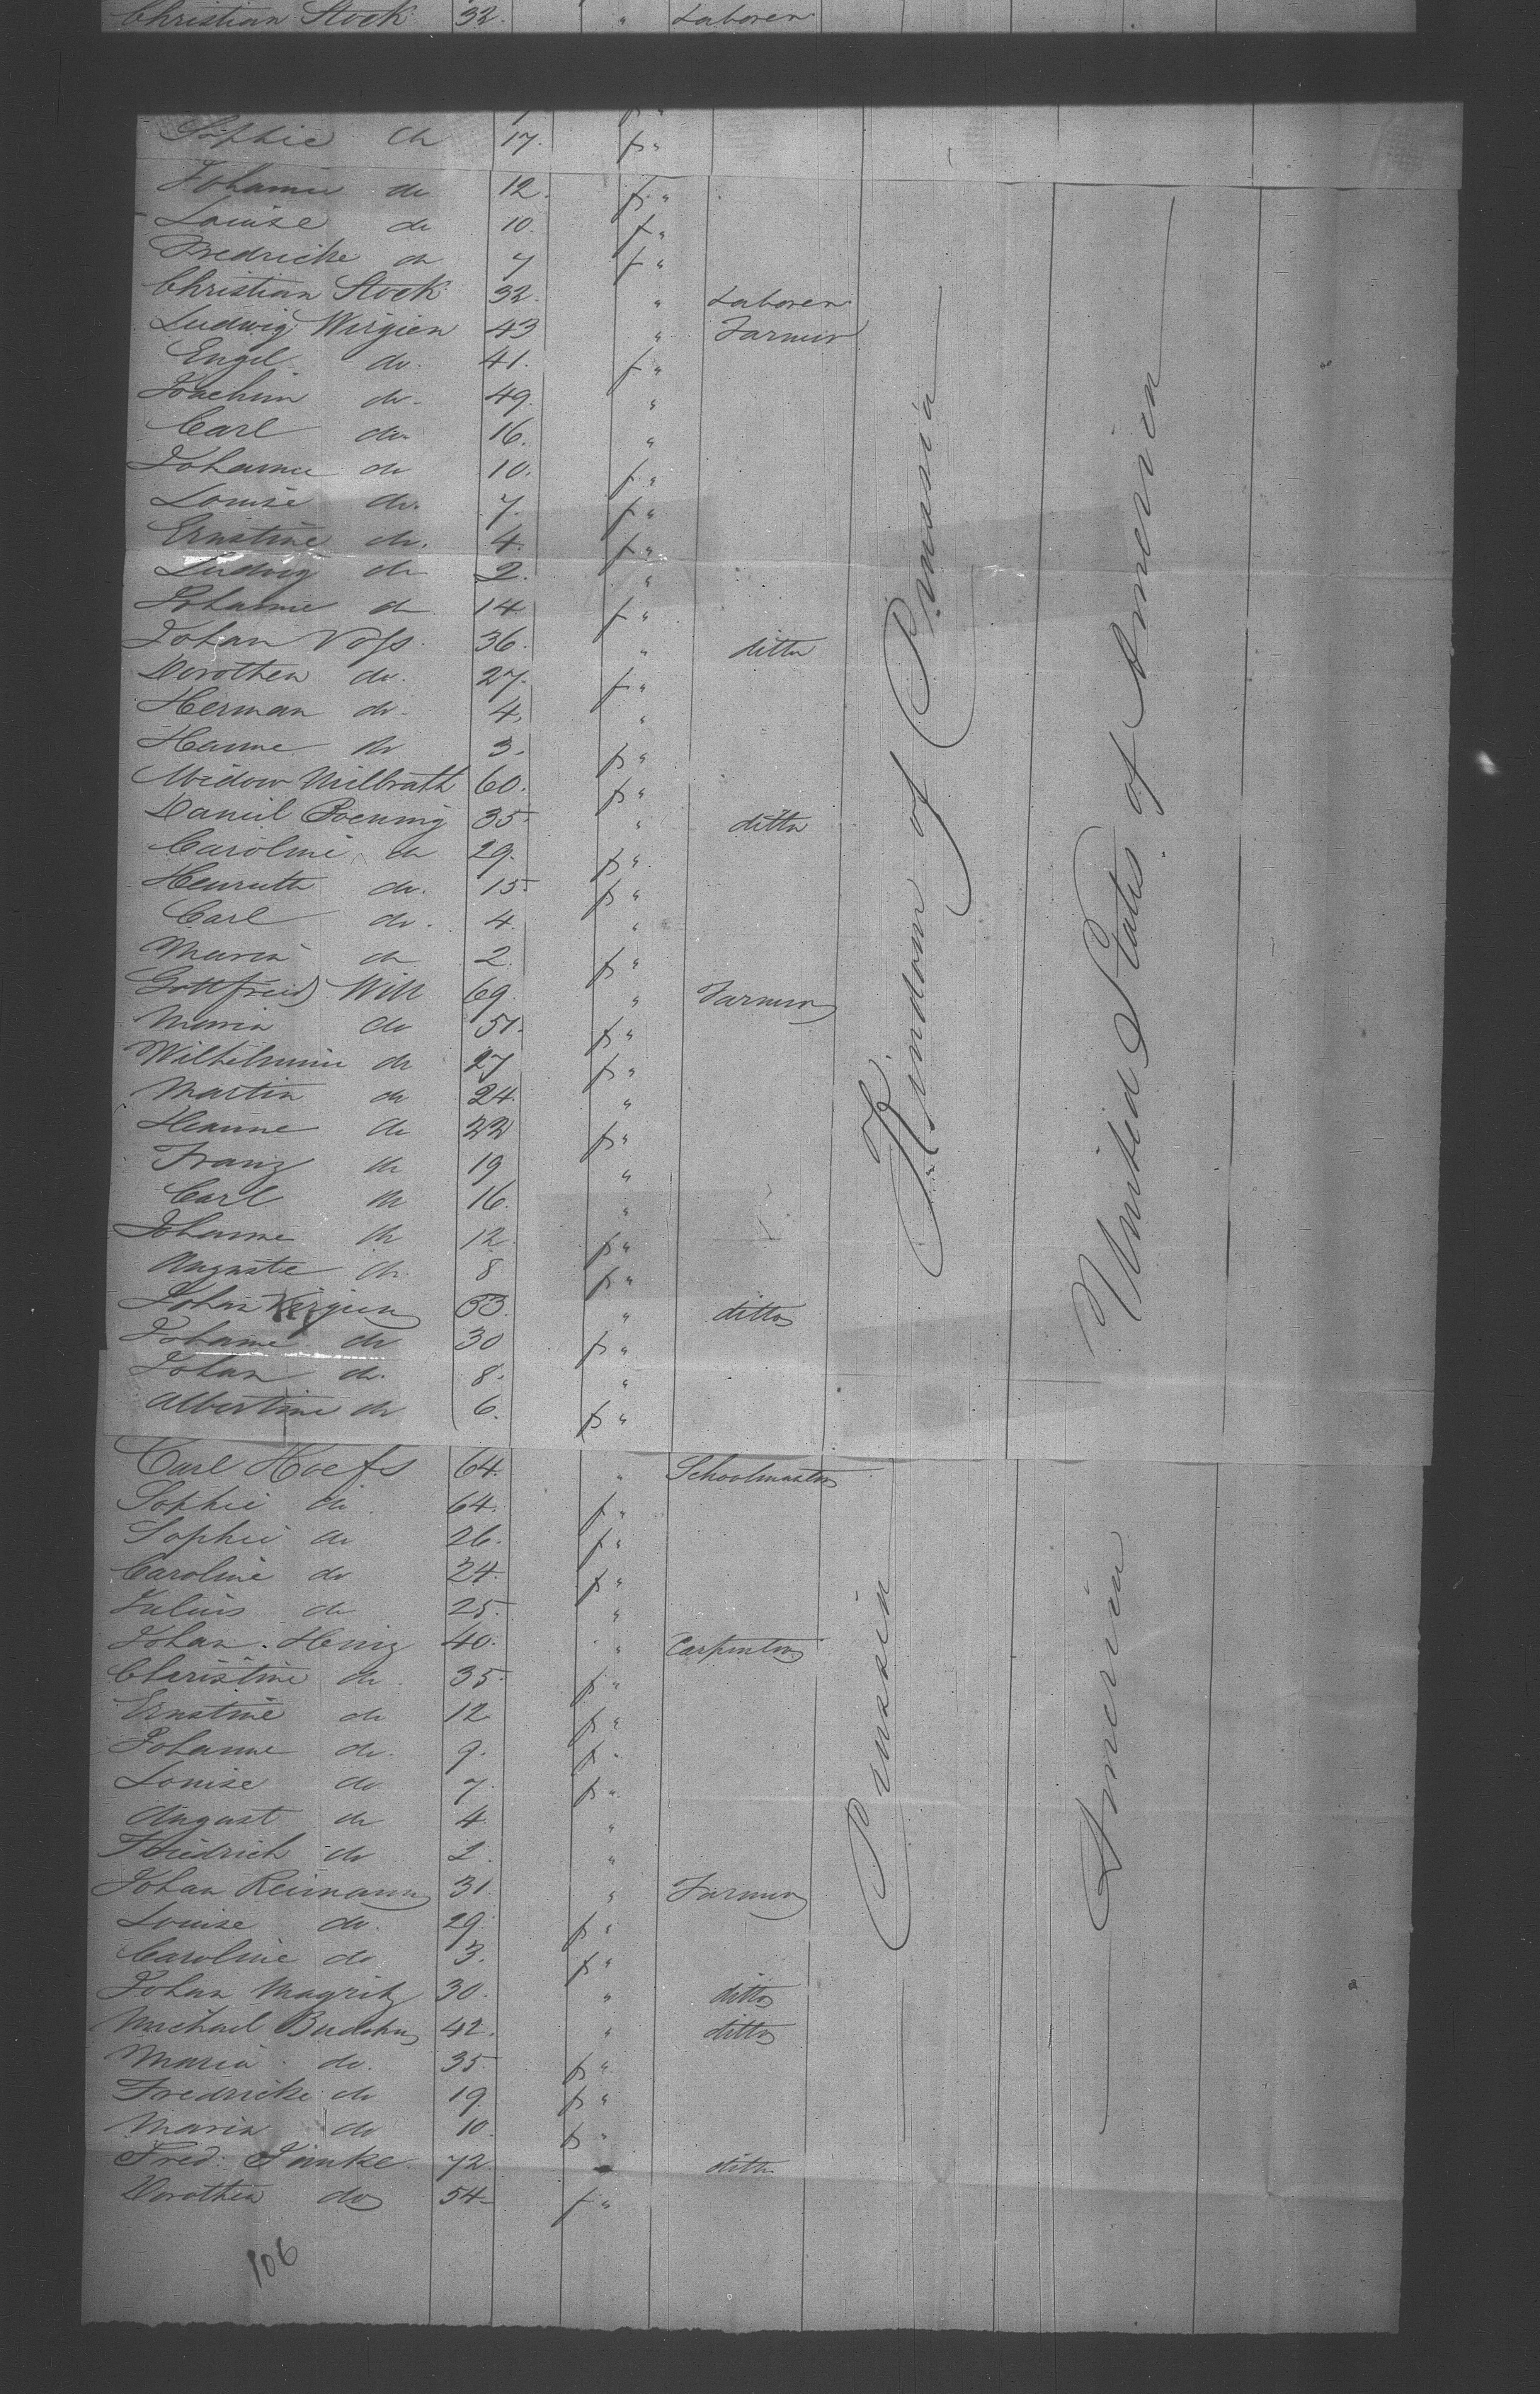 Christian Stock 32. " Laborer
Sophie do 17. f "
Johanne do 12. f "
Louise do 10. f "
Fredricke do 7 f "
Christian Stock 32. " Laborer
Ludwig Wirgien 43 " Farmer
Engel do. 41. f "
Joachim do. 49. "
Carl do. 16. "
Johanne do 10. f "
Louise do. 7. f "
Ernstine do. 4. f "
Ludwig do 2. "
Johanne do 14 f "
Johan Voss. 36. " ditto
Dorothea do. 27. f "
Herman do. 4. "
Hanne do 3. f "
Widow Milbrath 60. f "
Daniel Roening 35. " ditto
Caroline do 29. f "
Henrutte do. 15. f "
Carl do. 4. "
Maria do 2. f "
Gottfried Will 69. " Farmer
Maria do 51. f "
Wilhelmine do 27 f "
Martin do 24. "
Hanne do 22 f "
Franz do 19 "
Carl do 16. "
Johanne do 12 f "
Auguste do. 8 f "
Johan Virgien 33. " ditto
Johanne do 30 f "
Johan do. 8. "
Albertine do 6. f "
Kindom of Prussia
United States of America
Carl Hoefs 64. " Schoolmaster
Sophie do. 64. f "
Sophie do 26. f "
Caroline do 24. f "
Julius do 25. "
Johan. Heinz 40. " Carpenter
Christine do. 35. f "
Ernstine do 12 f "
Johanne do. 9. f "
Louise do 7. f "
August do 4. "
Friedrich do 2. "
Johan Reimann 31. " Farmer
Louise do. 29. f "
Caroline do 3. f "
Johan Magritz 30. " ditto
Michael 42. " ditto
Maria do. 35. f "
Fredricke do 19. f "
Maria do 10. f "
Fred. Janke. 72. ditto
Dorothea do 54. f "
Prussia
America
106